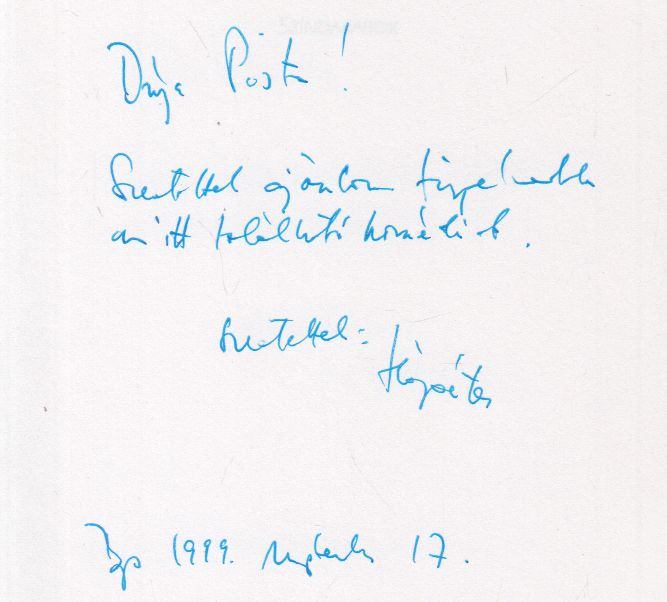 Drága Pista!
Szeretettel ajánlom figyelmedbe
az itt található komédiát.
Szeretettel:
Bp 1999. szeptember 17.